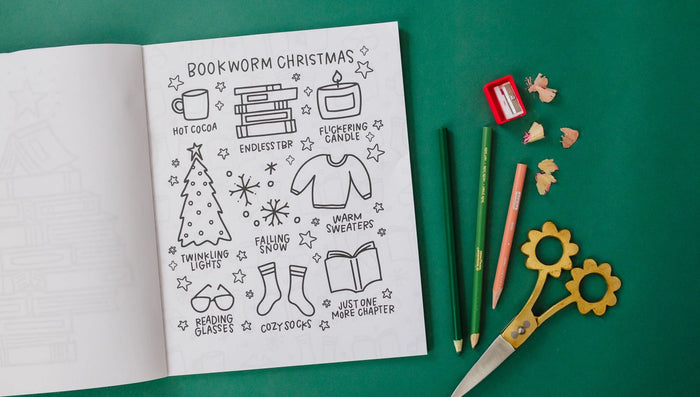 BOOKWORM CHRISTMAS
HOT COCOA
ENDLESS TBR
FLICKERING
CANDLE
TWINKLING
LIGHTS
FALLING
SNOW
WARM
SWEATERS
READING
GLASSES
COZY SOCKS
JUST ONE
MORE CHAPTER